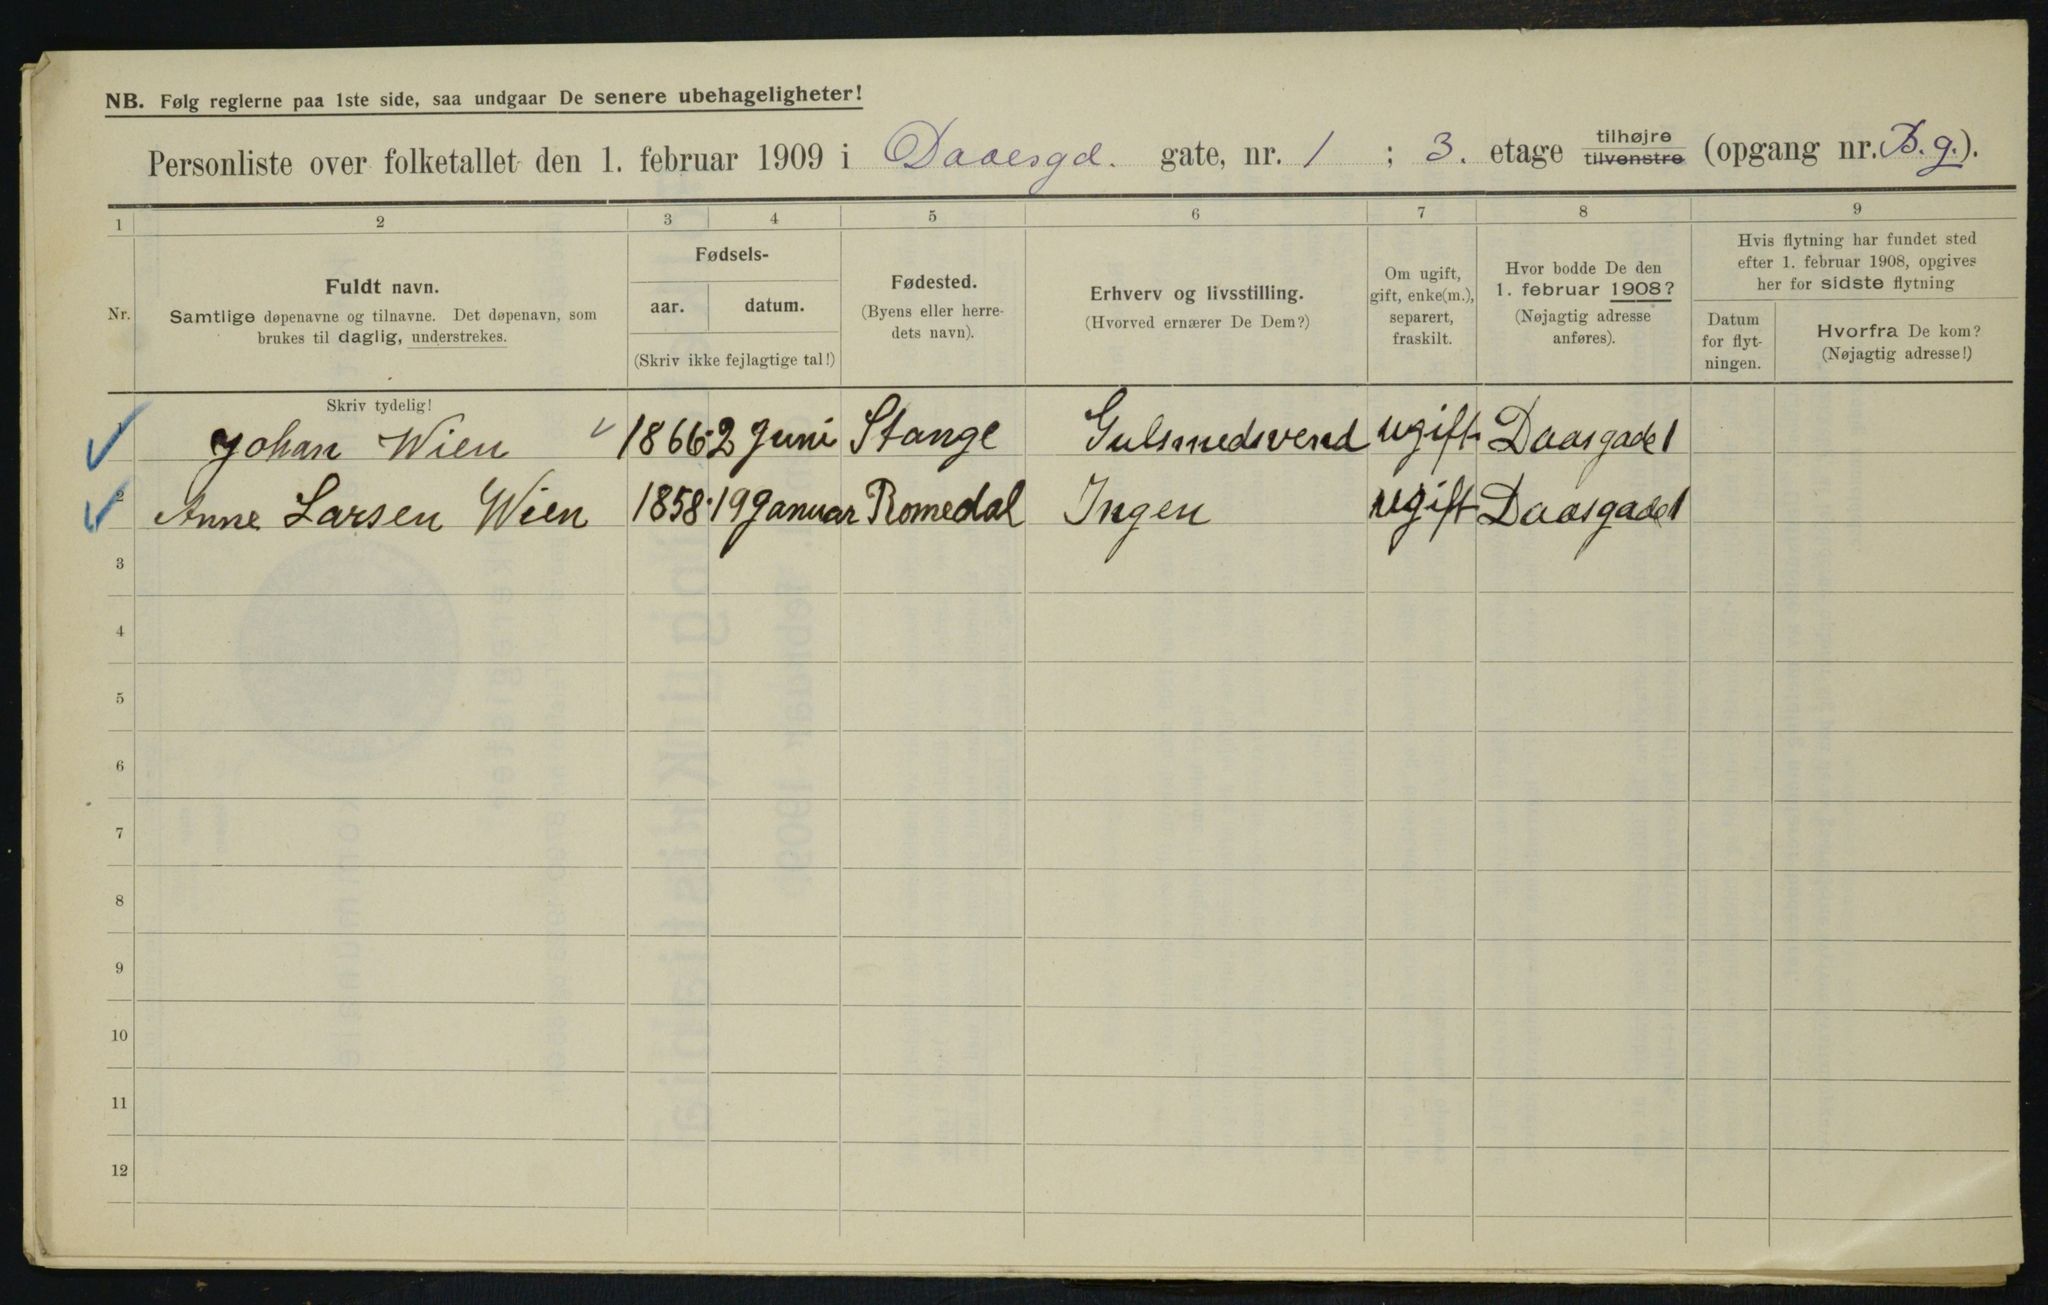 NB. Følg reglerne paa 1ste side, saa undgaar De senere ubehageligheter!
Personliste over folketallet den 1. februar 1909 i Daaesgd. gate, nr. 1 ; 3. etage tilhøjre tilvenstre (opgang nr. B. g.).
1 2 3 4 5 6 7 8 9
Nr.
Fuldt navn.
Samtlige døpenavne og tilnavne. Det døpenavn, som
brukes til daglig, understrekes.
Fødsels-
aar. datum.
(Skriv ikke fejlagtige tal!)
Fødested.
(Byens eller herre-
dets navn).
Erhverv og livsstilling.
(Hvorved ernærer De Dem?)
Om ugift,
gift, enke(m.),
separert,
fraskilt.
Hvor bodde De den
1. februar 1908?
(Nøjagtig adresse
anføres).
Hvis flytning har fundet sted
efter 1. februar 1908, opgives
her for sidste flytning
Datum
for flyt-
ningen.
Hvorfra De kom?
(Nøjagtig adresse!)
Skriv tydelig!
1 Johan Wien 1866 2 Juni Stange Gulsmedsvend ugift Daasgade 1
2 Anne Larsen Wien 1858 19 Januar Romedal Ingen ugift Daasgade 1
3
4
5
6
7
8
9
10
11
12